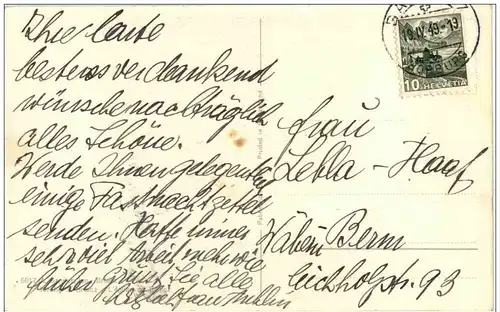 Ihre Carte
bestens verdankend
wünsche nachträglich
alles Schöne.
Werde Ihnen gelegentlich
einige Fastnachtzettel
senden. Hatte immer
sehr viel Arbeit, mehr wie
früher. Grüsst Sie alle
herzlich
Frau
Wabern Bern
Eichholzstr. 93
10 HELVETIA